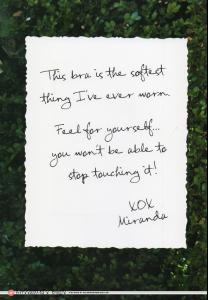 This bra is the softest
thing I've ever worn.
Feel for yourself...
you won't be able to
stop touching it!
XOX
Miranda